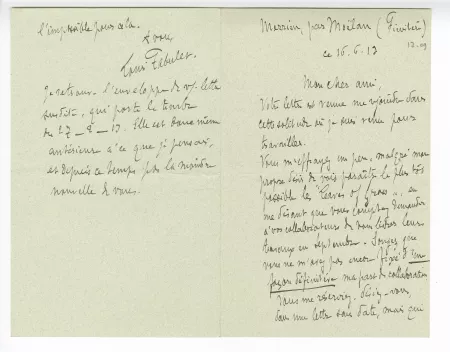 l'impossible pour cela.
A vous
Louis Fabulet.
Je retrouve l'enveloppe de votre lettre
susdite, qui porte le timbre
du 27-2-13. Elle est donc même
antérieure à ce que je pensais,
et depuis ce temps pas la moindre
nouvelle de vous.
Merrien, par Moëlan (Finistère)
ce 16.6.13
Mon cher ami.
Votre lettre est venue me rejoindre dans
cette solitude où je suis venu pour
travailler.
Vous m'effrayez un peu, malgré mon
propre désir de voir paraître le plus tôt
possible les "Leaves of Grass", en
me disant que vous comptez demander
à vos collaborateurs de vous livrer leurs
travaux en septembre. Songez que
vous ne m'avez pas encore fixé d'une
façon définitive ma part de collaboration
Vous me réserviez, disiez-vous,
dans une lettre sans date, mais qui